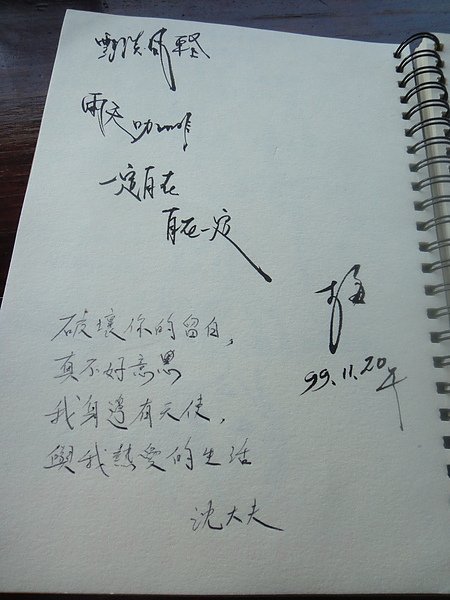 雲淡風輕
雨天咖啡
一定自在
自在一定
梅
99.11.20 午
破壞你的留白,
真不好意思
我身邊有天使,
與我熱愛的生活
沈大夫